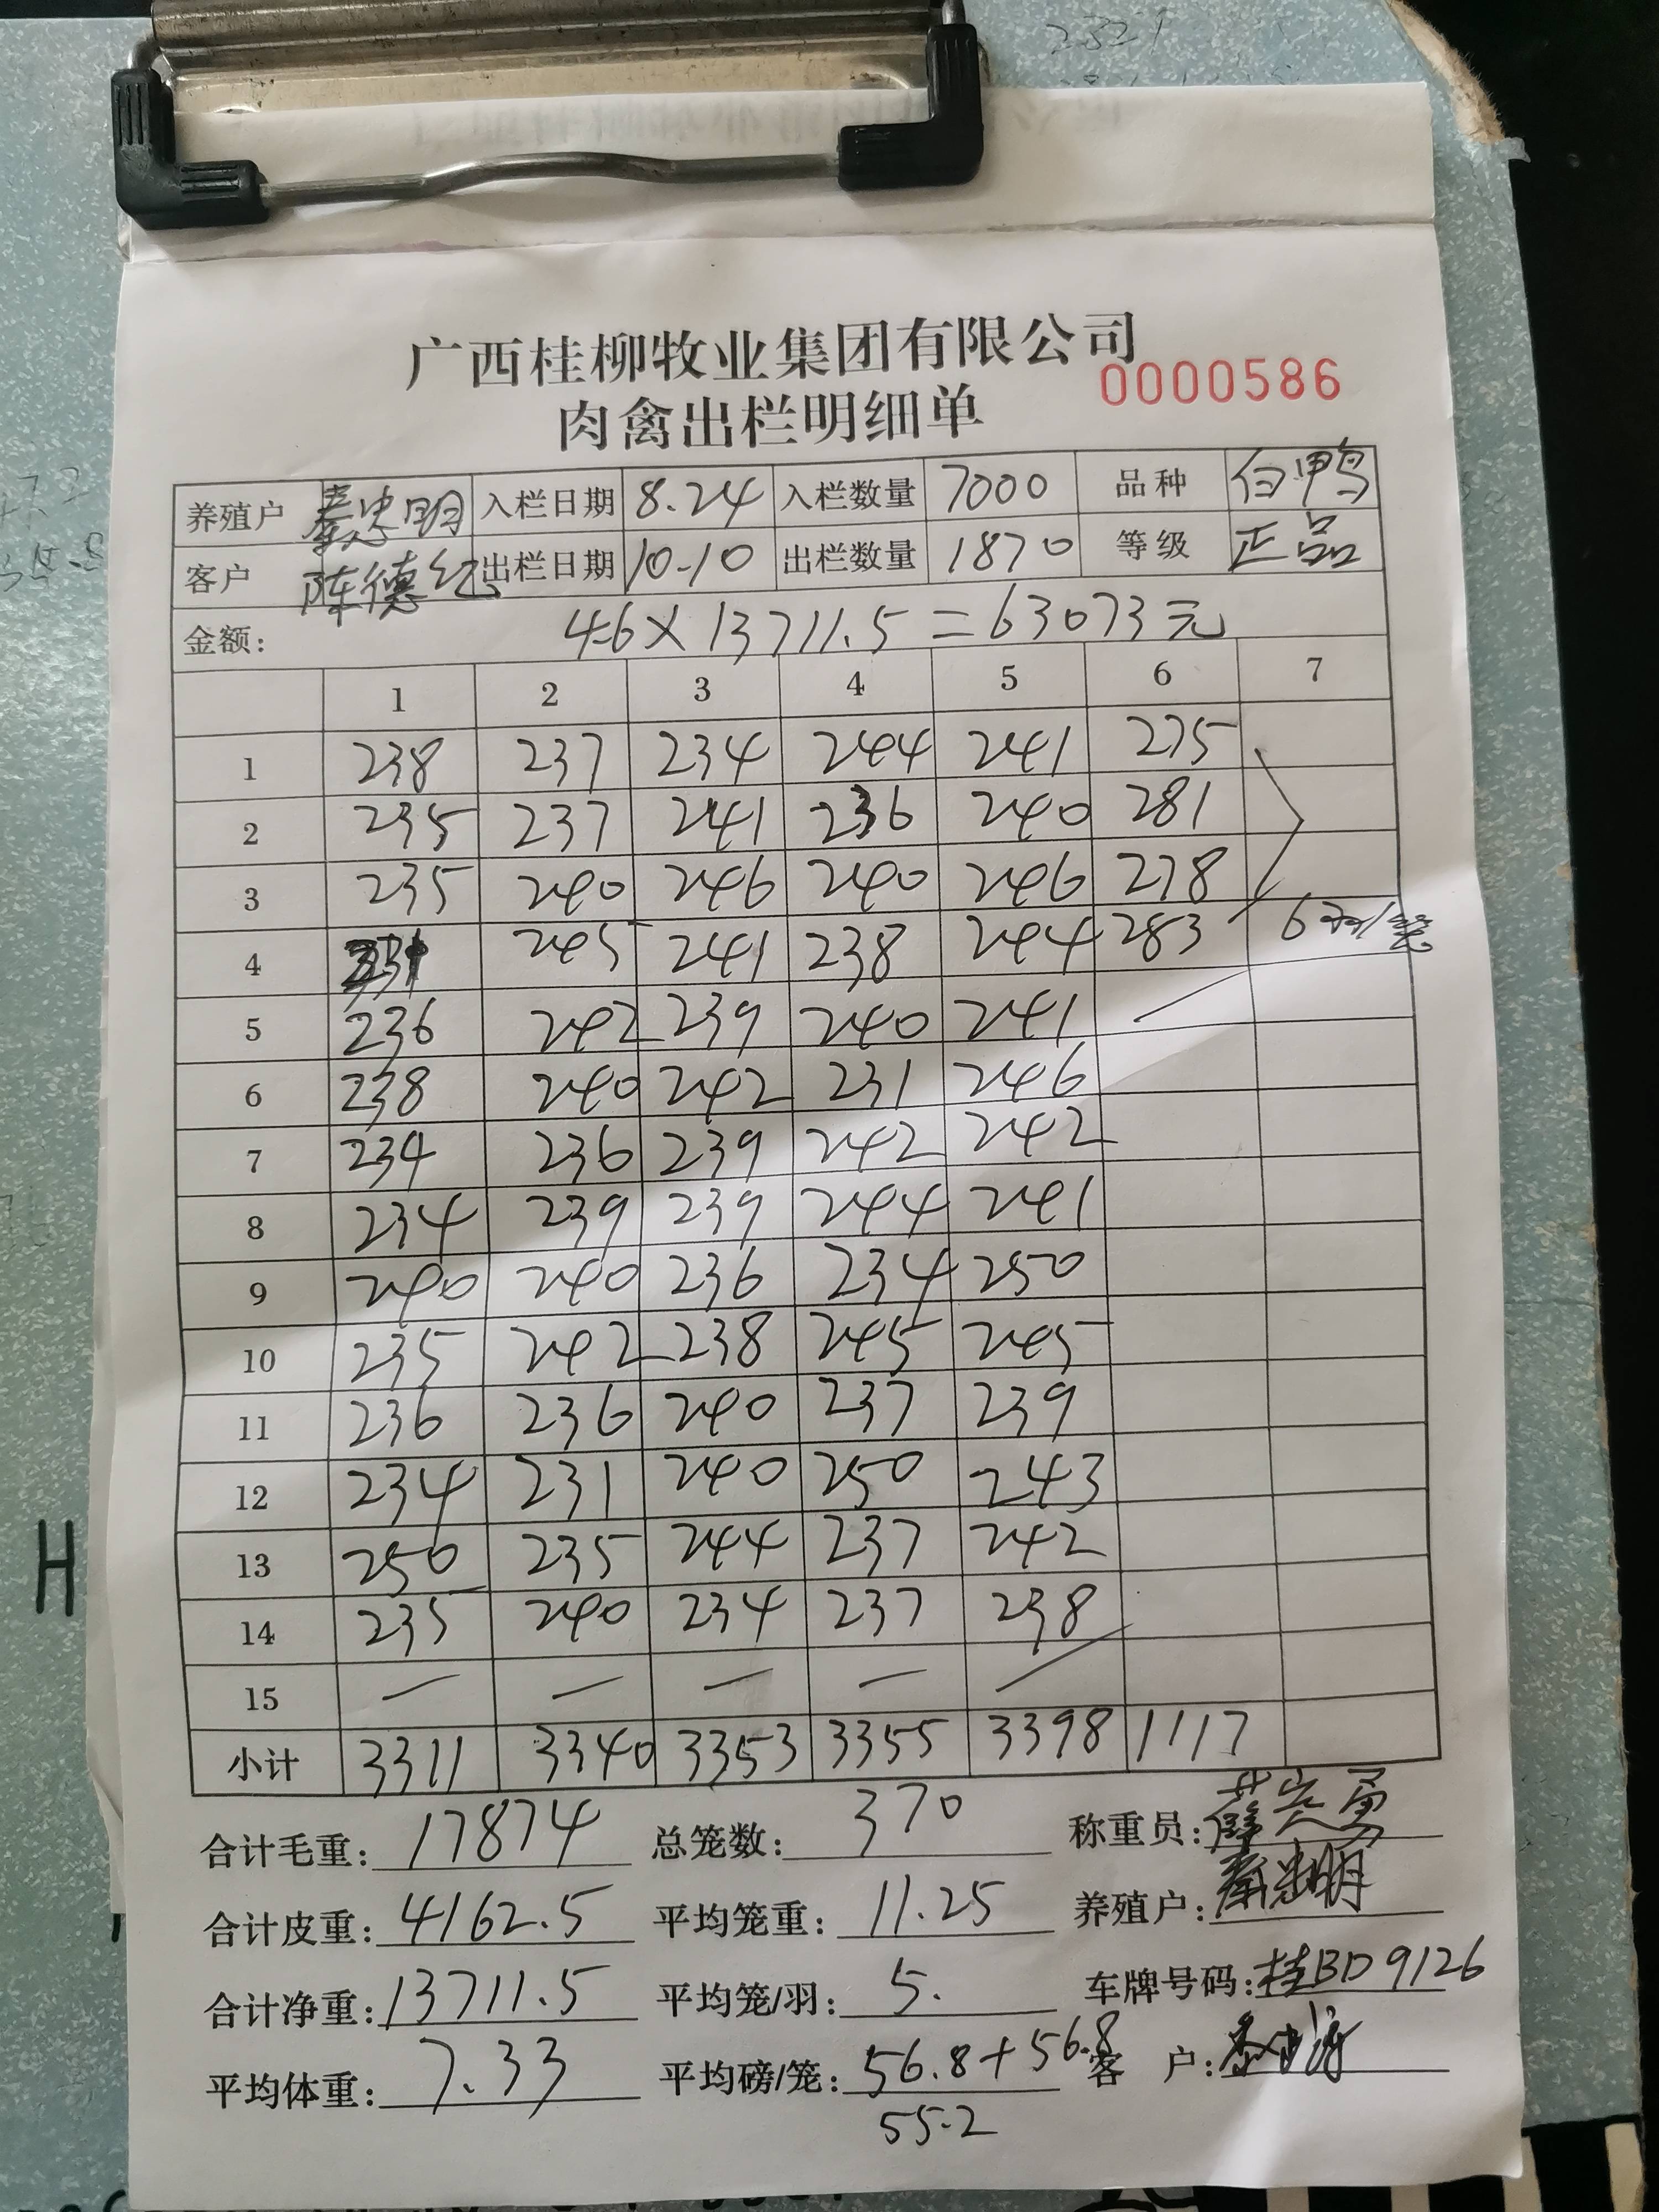 广西桂柳牧业集团有限公司
0000586
肉禽出栏明细单
养殖户 秦忠明 入栏日期 8.24 入栏数量 7000 品种 白鸭
客户 陈德 出栏日期 10.10 出栏数量 1870 等级 正品
金额: 4.6×13711.5=63073元
1 2 3 4 5 6 7
1 238 237 234 244 241 275
2 235 237 241 236 240 281
3 235 240 246 240 246 278
4 231 245 241 238 244 283 6
5 236 242 239 240 241 —
6 238 240 242 231 246
7 234 236 239 242 242
8 234 239 239 244 241
9 240 240 236 234 250
10 235 242 238 245 245
11 236 236 240 237 239
12 234 231 240 250 243
13 250 235 244 237 242
14 235 240 234 237 238
15 — — — — —
小计 3311 3340 3353 3355 3398 1117
合计毛重: 17874 总笼数: 370 称重员:
合计皮重: 4162.5 平均笼重: 11.25 养殖户: 秦忠明
合计净重: 13711.5 平均笼/羽: 5. 车牌号码: 桂BD9126
平均体重: 7.33 平均磅/笼: 56.8+56.8 客 户:
55.2